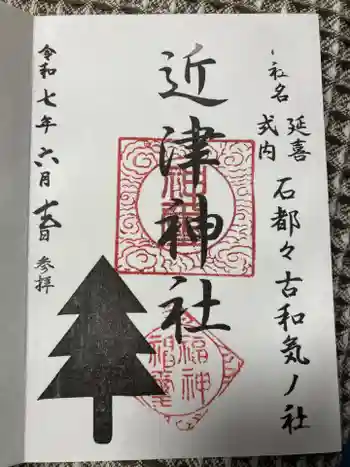 社名 延喜
式内
石都々古和気ノ社
近津神社
令和七年六月 参拝
福神